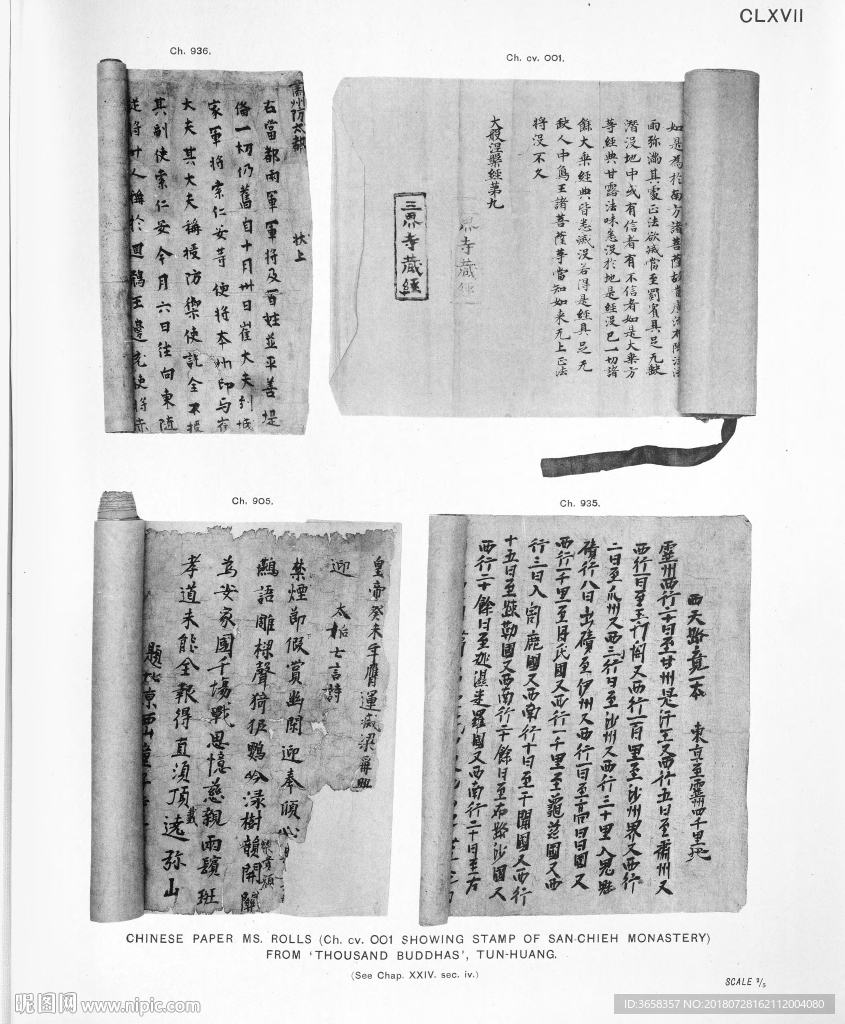 CLXVII
Ch. 936.
肅州防
状上
右當都兩軍軍將及百姓並平善堤
備一切仍舊自十月卅日崔大夫到城
家軍將索仁安等使將本州印与崔
大夫其大夫稱授防禦使訖全不授
其副使索仁安今月六日往向東随
Ch. cv. 001.
而弥滿其處正法欲滅當至罽賓具足无缺
潛没地中或有信者有不信者如是大乘方
等經典甘露法味悉没於地是經没已一切諸
餘大乘經典皆悉滅没若得是經具足无
缺人中為王諸菩薩等當知如来无上正法
將没不久
大般涅槃經第九
界寺藏經
三界寺藏經
Ch. 905.
皇帝癸未年膺運滅梁再興
迎 太知士言詩
禁煙節假賞幽閑迎奉傾心
鷰語雕樑聲猗狔鸎吟渌樹韻開關
為安家國千場戰思憶慈親兩鬢班
孝道未能全報得直須頂戴遶弥山
Ch. 935.
西天路竟一本
東京至靈州四千里地
靈州西行二十日至甘州是汗王又西行五日至肅州又
西行一日至玉門關又西行一百里至沙州界又西行
二日至瓜州又西三行日至沙州又西行三十里入鬼魅
磧行八日出磧至伊州又西行一日至高昌國又
西行一千里至月氏國又西行一千里至龜茲國又西
行三日入割鹿國又西南行十日至于闐國又西行
十五日至踈勒國又西南行二十餘日至布路沙國又
西行二十餘日至迦濕弥羅國又西南行二十日至左
CHINESE PAPER MS. ROLLS (Ch. cv. 001 SHOWING STAMP OF SAN-CHIEH MONASTERY)
FROM 'THOUSAND BUDDHAS', TUN-HUANG.
(See Chap. XXIV. sec. iv.)
SCALE 2/5
昵图网 www.nipic.com
ID:3658357 NO:20180728162112004080